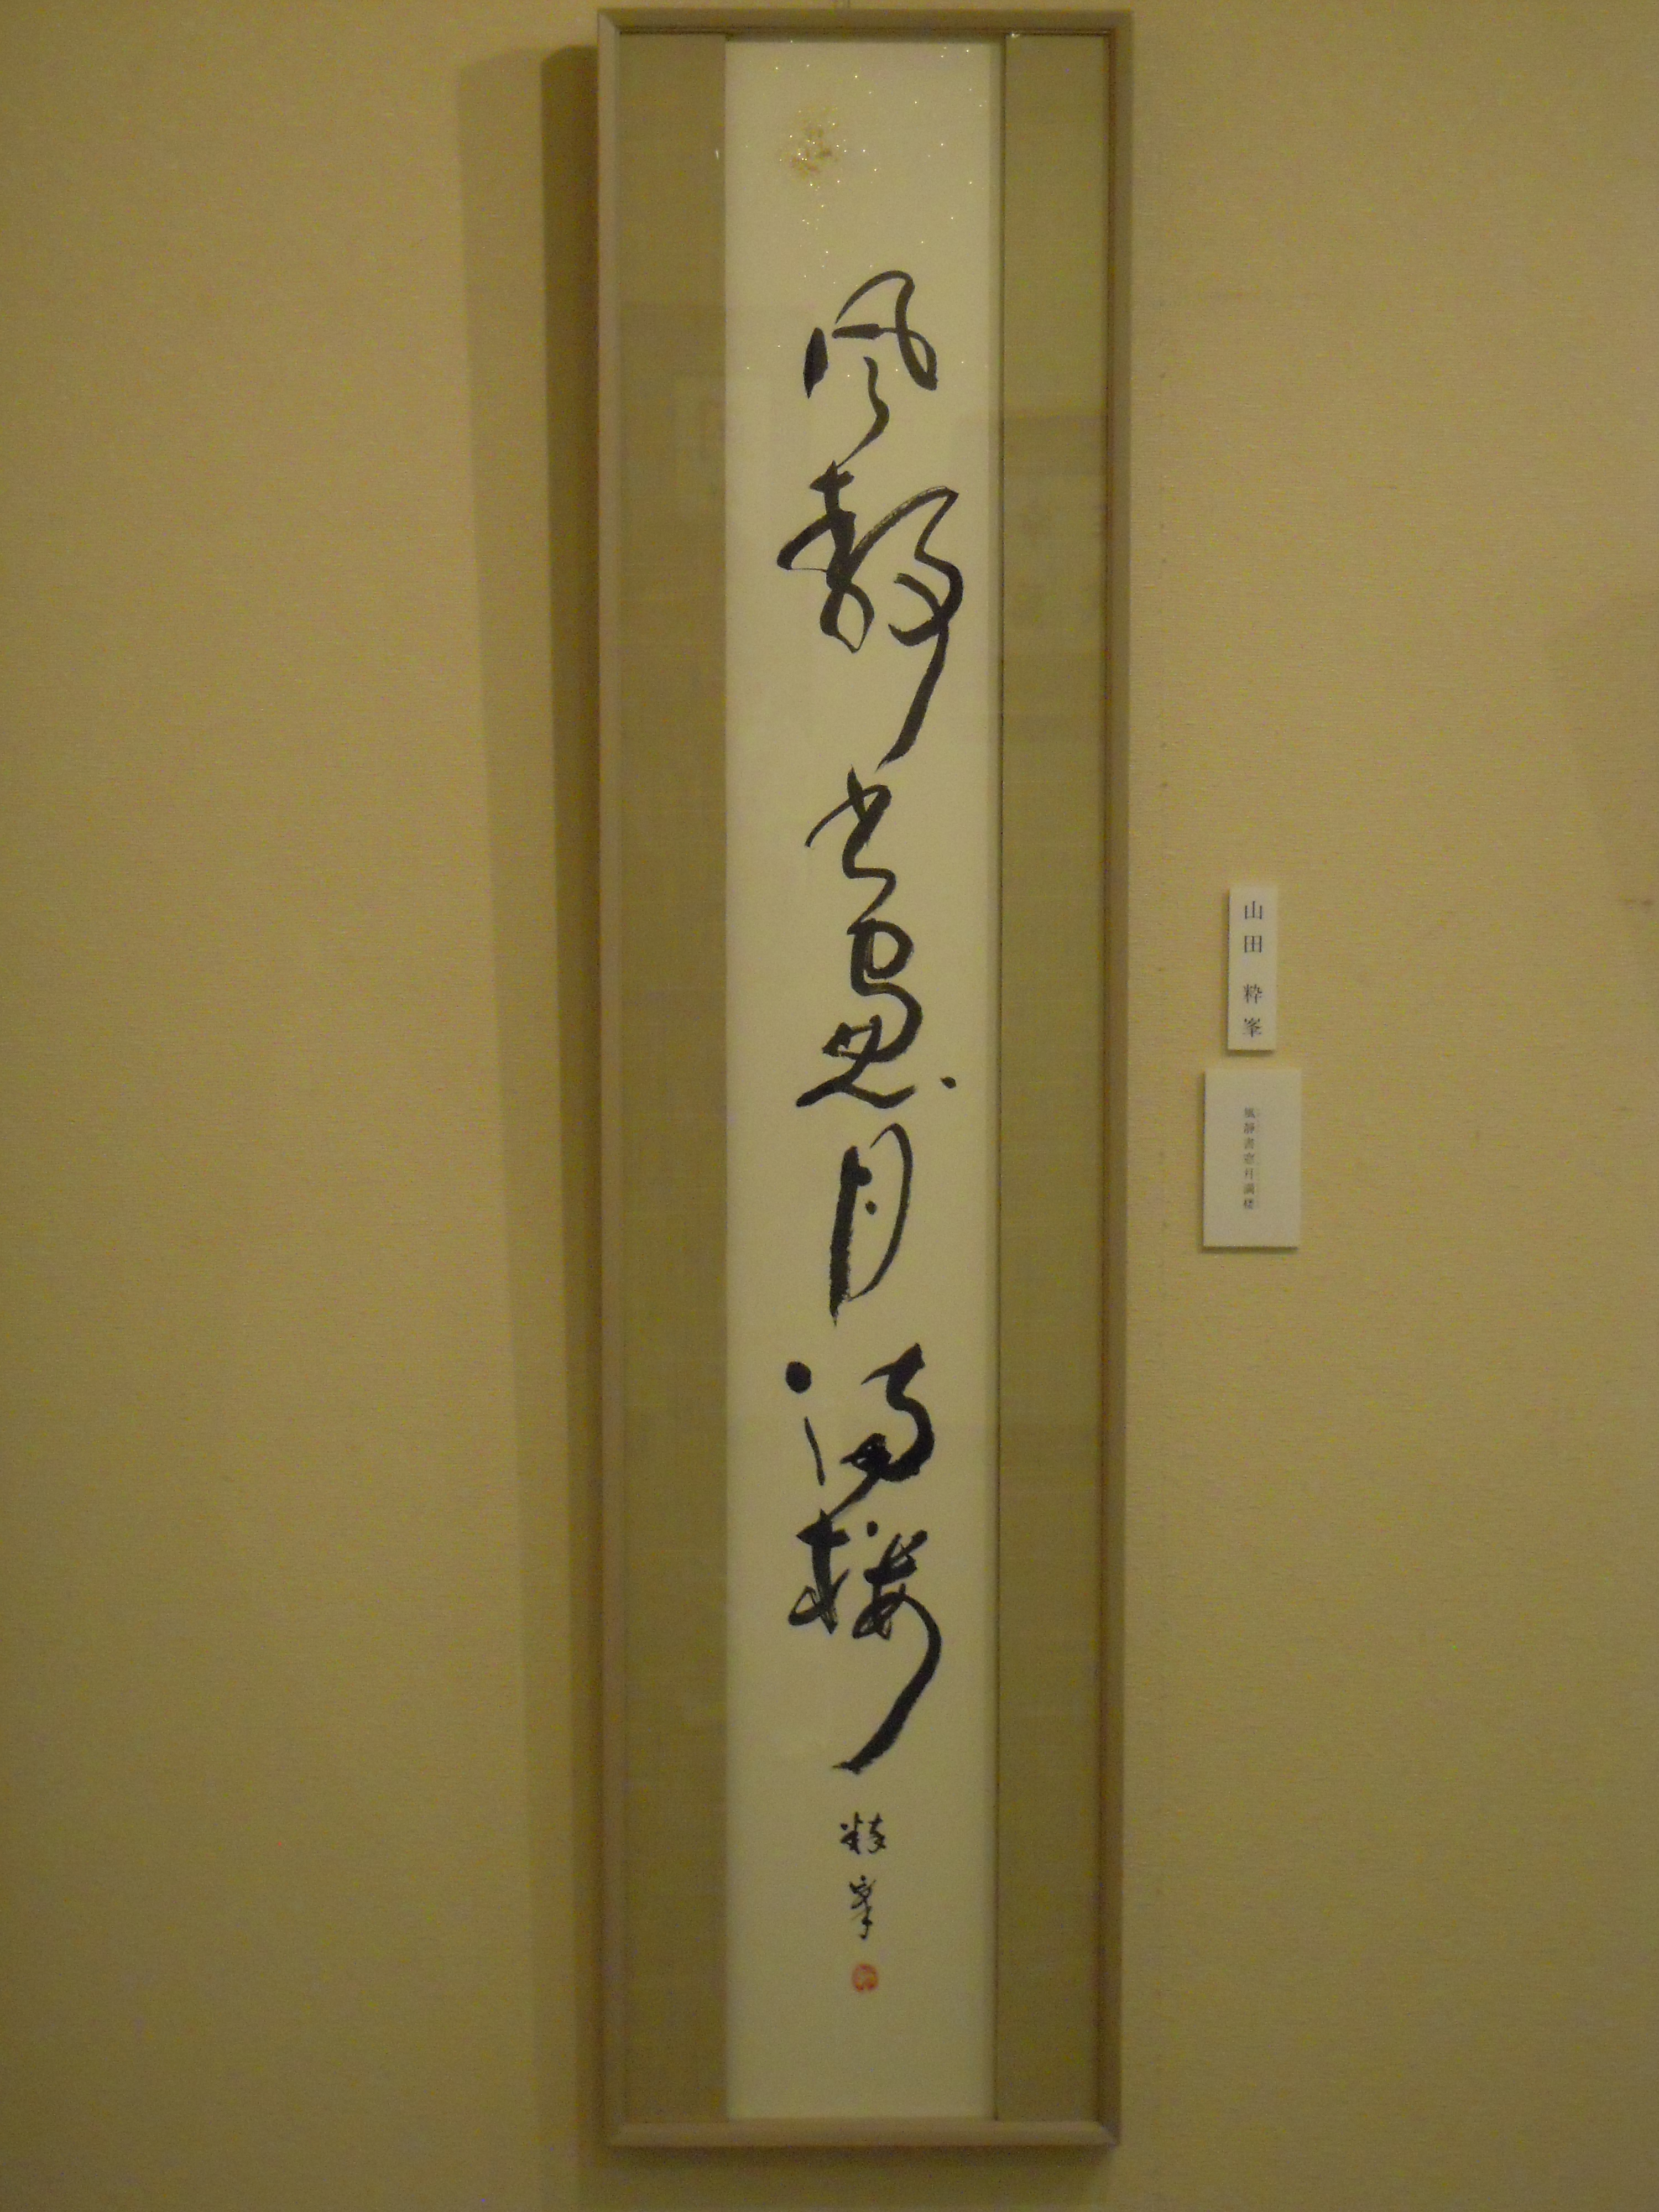 風静書窓月満楼
粋峯
山田 粋峯
風静書窓月満楼